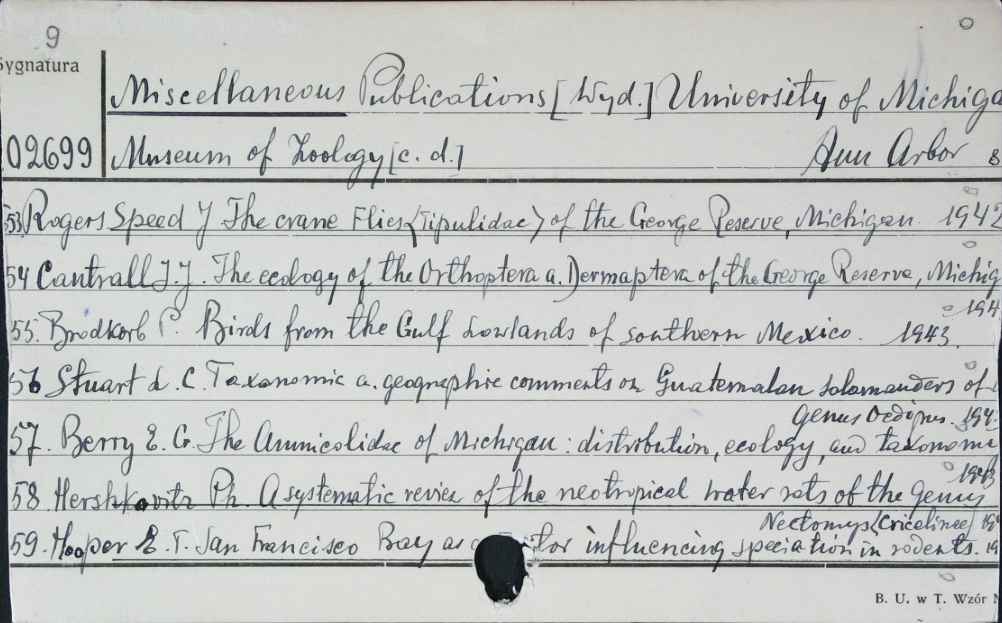 9
Sygnatura
Miscellaneous Publications [Wyd.] University of Michiga
02699 Museum of Zoology [c. d.] Ann Arbor 8
53 Rogers Speed J The crane Flies <Tipulidae> of the George Reserve, Michigan. 1942
54 Cantrall J.J. The ecology of the Orthoptera a. Dermaptera of the George Reserve, Michig
194
55. Brodkorb P. Birds from the Gulf Lowlands of southern Mexico. 1943.
56 Stuart L. C. Taxonomic a. geographic comments on Guatemalan salamanders of
genus Oedipus. 194
57. Berry E. G. The Amnicolidae of Michigan: distribution, ecology, and taxonomy
1943
58 Hershkovitz Ph. A systematic review of the neotropical water rats of the genus
Nectomys (Cricetinae) 19
59. Hooper E. T. San Francisco Bay as a tor influencing speciation in rodents. 19
B. U. w T. Wzór N